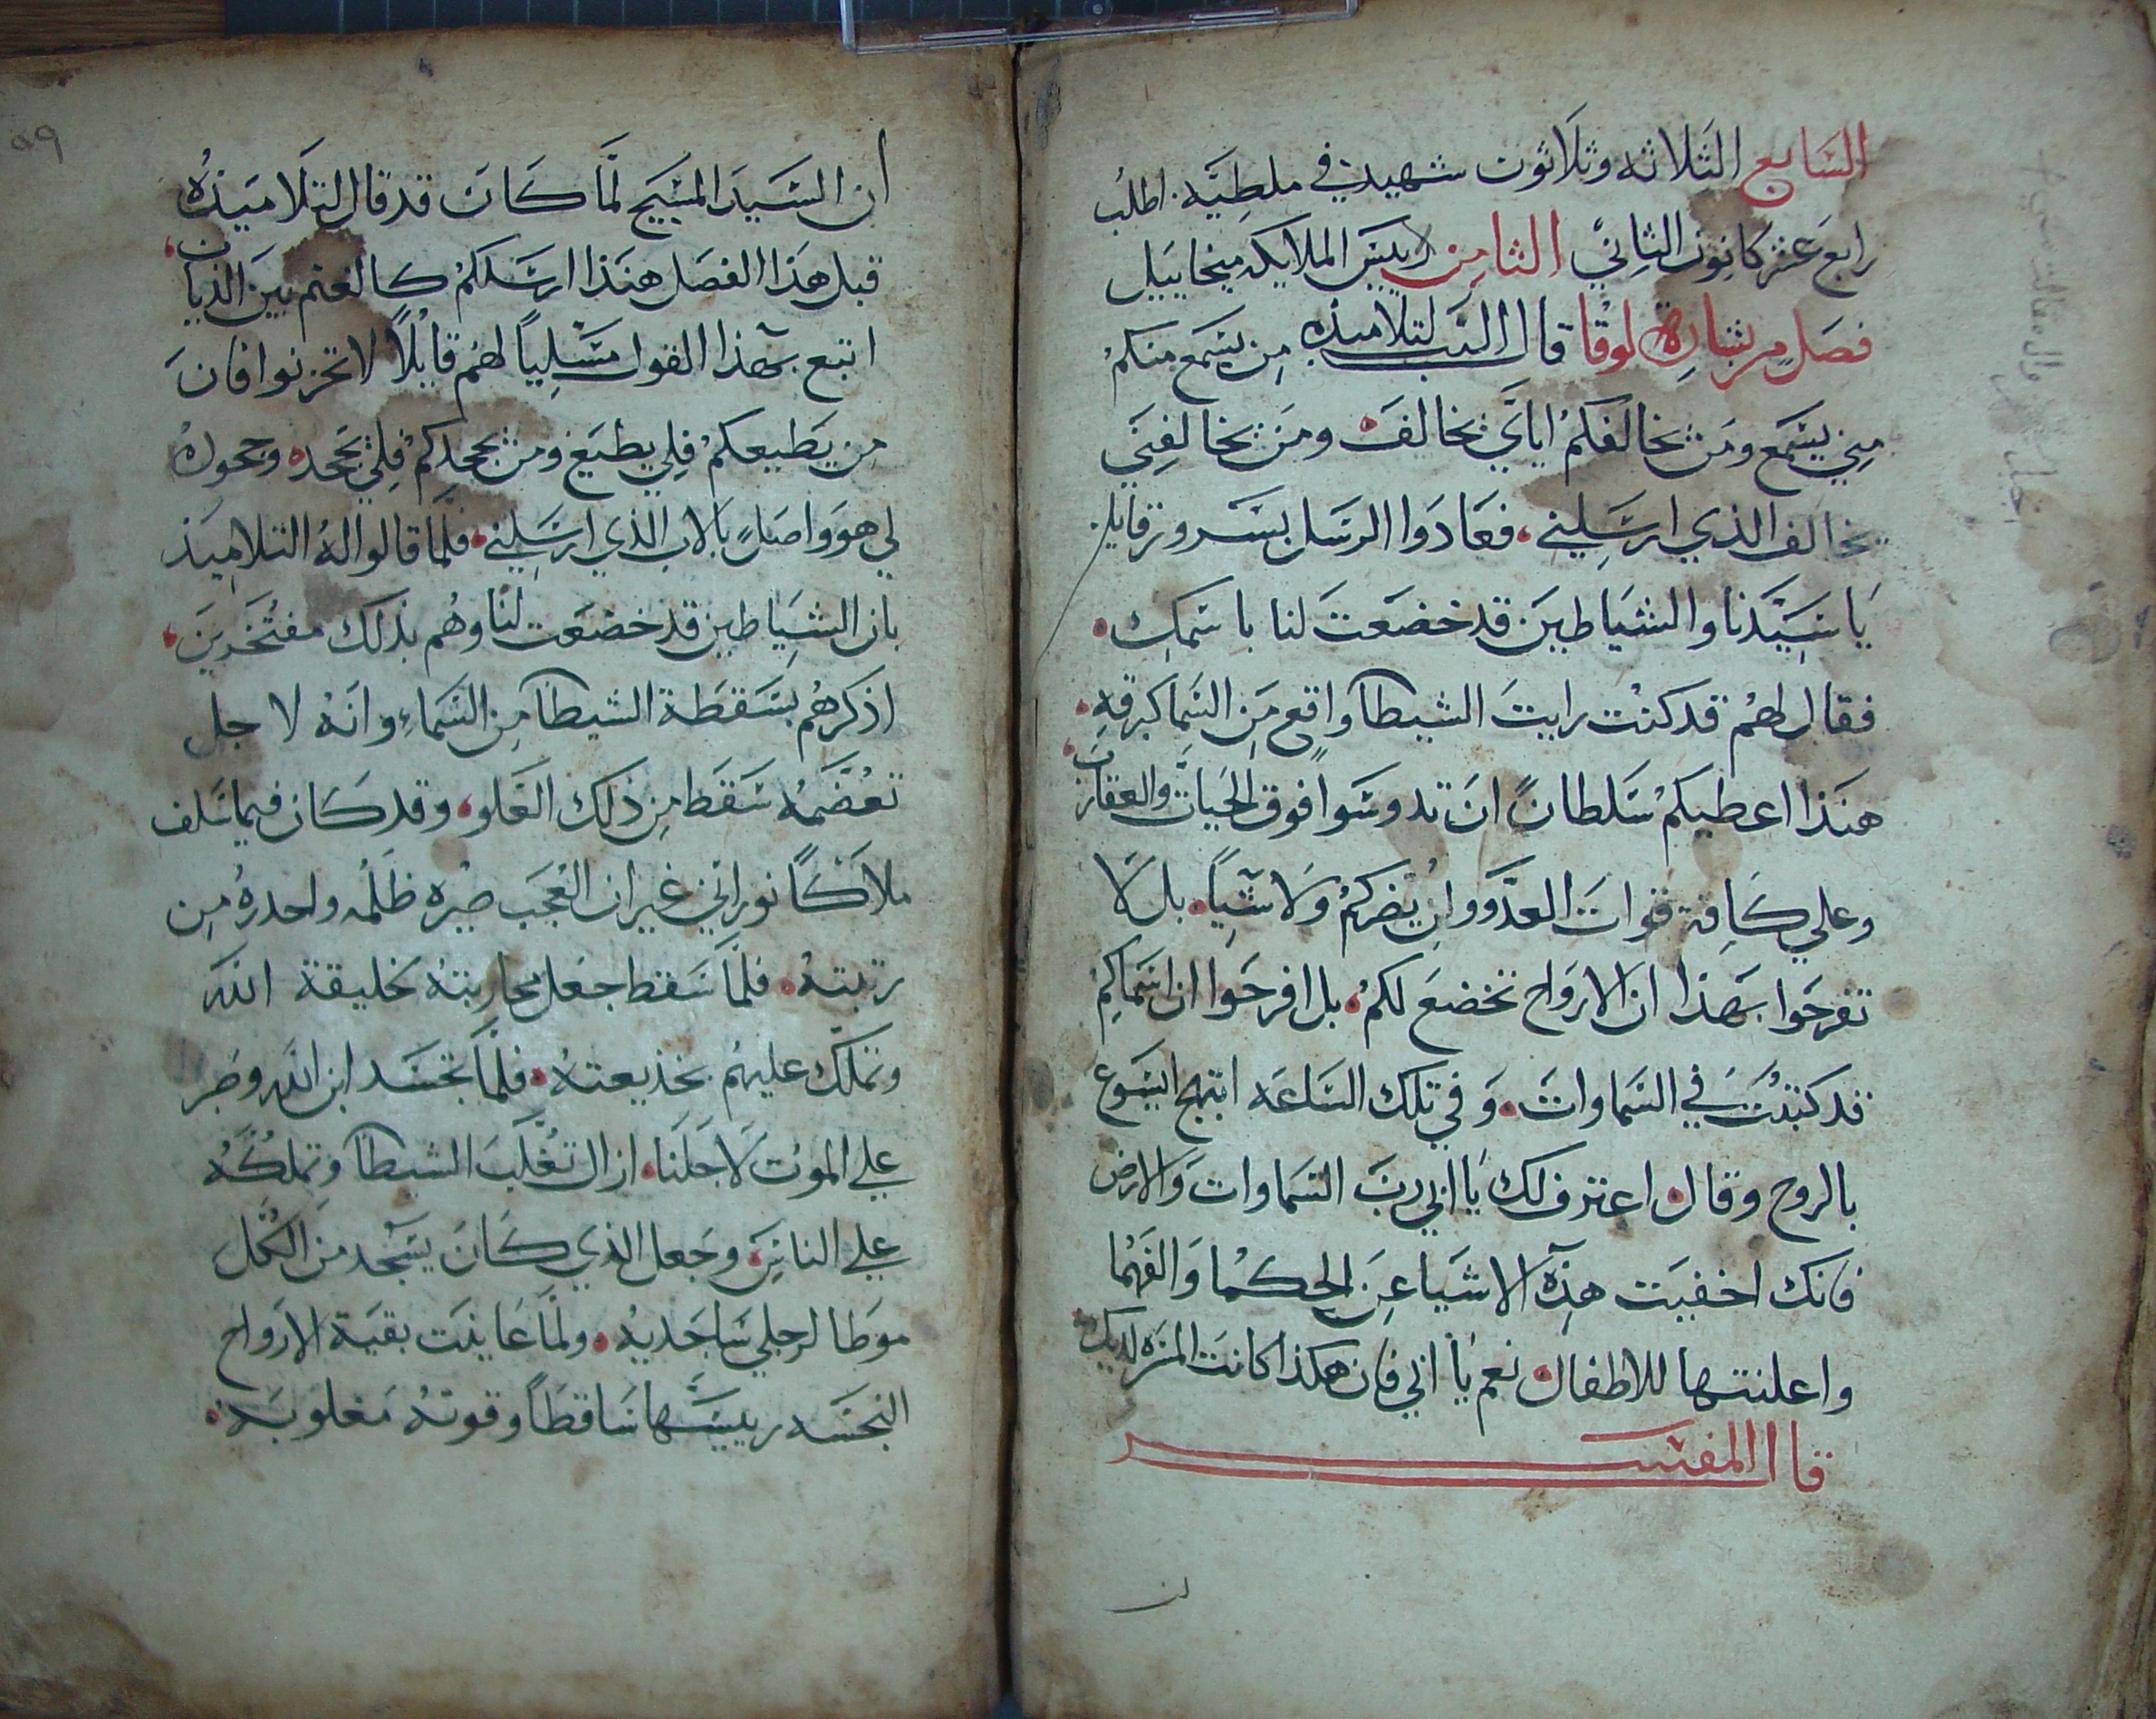 السَابع الثَلاثه وثلاثون شهيد في ملطِيَّه اطلُب
رابعَ عشر كانون الثاني الثامِن لرييسَ الملايكه ميخاييل
فصَل من بشارة لوقا قال الرَب لتلاميذه مِن يسَمع منكمُ
مِني يسَمع ومَن يخالفكمُ اياي يخالف ومَن يخالفِني
يخالف الذي ارسَلِني فعَادَوا الرسَل بسَرور قايلِين
يَا سَيِّدَنا والشياطينَ قد خضعَت لنا باسَمك
فقال لهُم قد كنت رايت الشيطان واقع مِن السَما كبرقهِ
هنَذا اعطيكمُ سَلطاناً ان تدوسَوا فوق الحَيات والعقارب
وعلي كَافة قوات العدَّو وان يضركمُ ولا شَياً بل لا
تفرحَوا بهَذا ان الارواح تخضع لكمُ بل افرحَوا ان اسَماكمُ
قد كتبتُ في السَماوات وَفي تلك السَاعَه ابتهج ايسَوع
بالروح وقال اعترف لك يَا ابي ربَ السَماوات وَالارض
فانك اخفيت هذه الاشيا عِن الحكما وَالفهَما
واعلنتها للاطفال نعم يا ابي فان هكذا كانت المسَره لديك
قال المفسَر
لن
٥٩
أن السَيدَ المسَيح لمَّا كَانَ قد قال لتلاميذهُ
قبل هَذا الفصَل هنَذا ارسَلكمُ كالغنم بينَ الذياب
اتبع بهَذا القول مسَلياً لهُم قايلاً لا تحزنوا فان
مِن يَطيعكمُ فلِي يطيَع ومَن يجحدكمُ فلِي يجَحد وجحودهُ
لي هوَ واصَل بالاب الذي ارسَلِني فلمَّا قالوا لهُ التلاميَذ
بان الشِياطين قد خضعَت لنَا وهُم بذلك مفتخَرين
اذكرهُم بسَقطَة الشيطان مِن السَماء وانهُ لاجل
تعُضَمهُ سَقط مِن ذلك العَلو وقد كَان فيما سَلف
ملاكَاً نوراني غير ان العُجَب صيره ظلمُه واحدرهُ مِن
رتبتهُ فلمَّا سَقط جعَل محاربتهُ لخليقة الله
وتملك عليهُم بخديعتهُ فلمَّا تجسَد ابن الله وصَبر
علي الموُت لاجلنَا ازال تغُلبَ الشيطان وتملكُهُ
علي الناسَ وجَعل الذي كَانَ يسَجد مَن الكُل
موَطا لرجلي سَاجديهُ ولمَّا عَاينت بقيَة الارَواح
النجسَه رييسَها سَاقطاً وقوتهُ مَغلوبَه